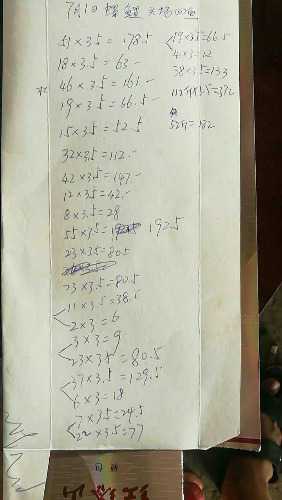 7月1日
51×3.5=178.5
18×3.5=63-
46×3.5=161-
19×3.5=66.5-
15×3.5=52.5
32×3.5=112.-
42×3.5=147.-
12×3.5=42.-
8×3.5=28
55×3.5= 192.5
23×3.5=80.5
23×3.5=80.5
11×3.5=38.5
2×3=6
3×3=9
23×3.5=80.5
37×3.5=129.5
6×3=18
7×3.5=24.5
22×3.5=77
19×3.5=66.5
4×3=12
38×3.5=133